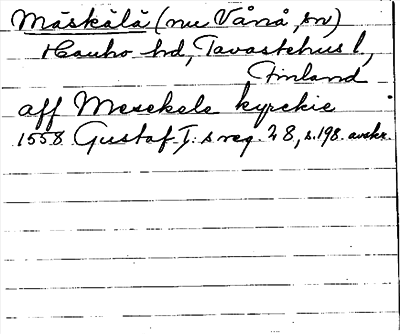 Mäskälä (nu Vånå, sn)
Hauho hd, Tavastehus l,
Finland
aff Mesekele kyrckie
1558 Gustaf I:s reg. 28, s. 198. avskr.